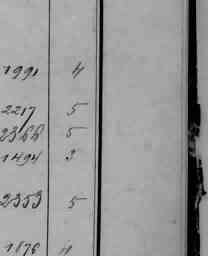 1991 4
2217 5
2366 5
1494 3
2353 5
1876 4